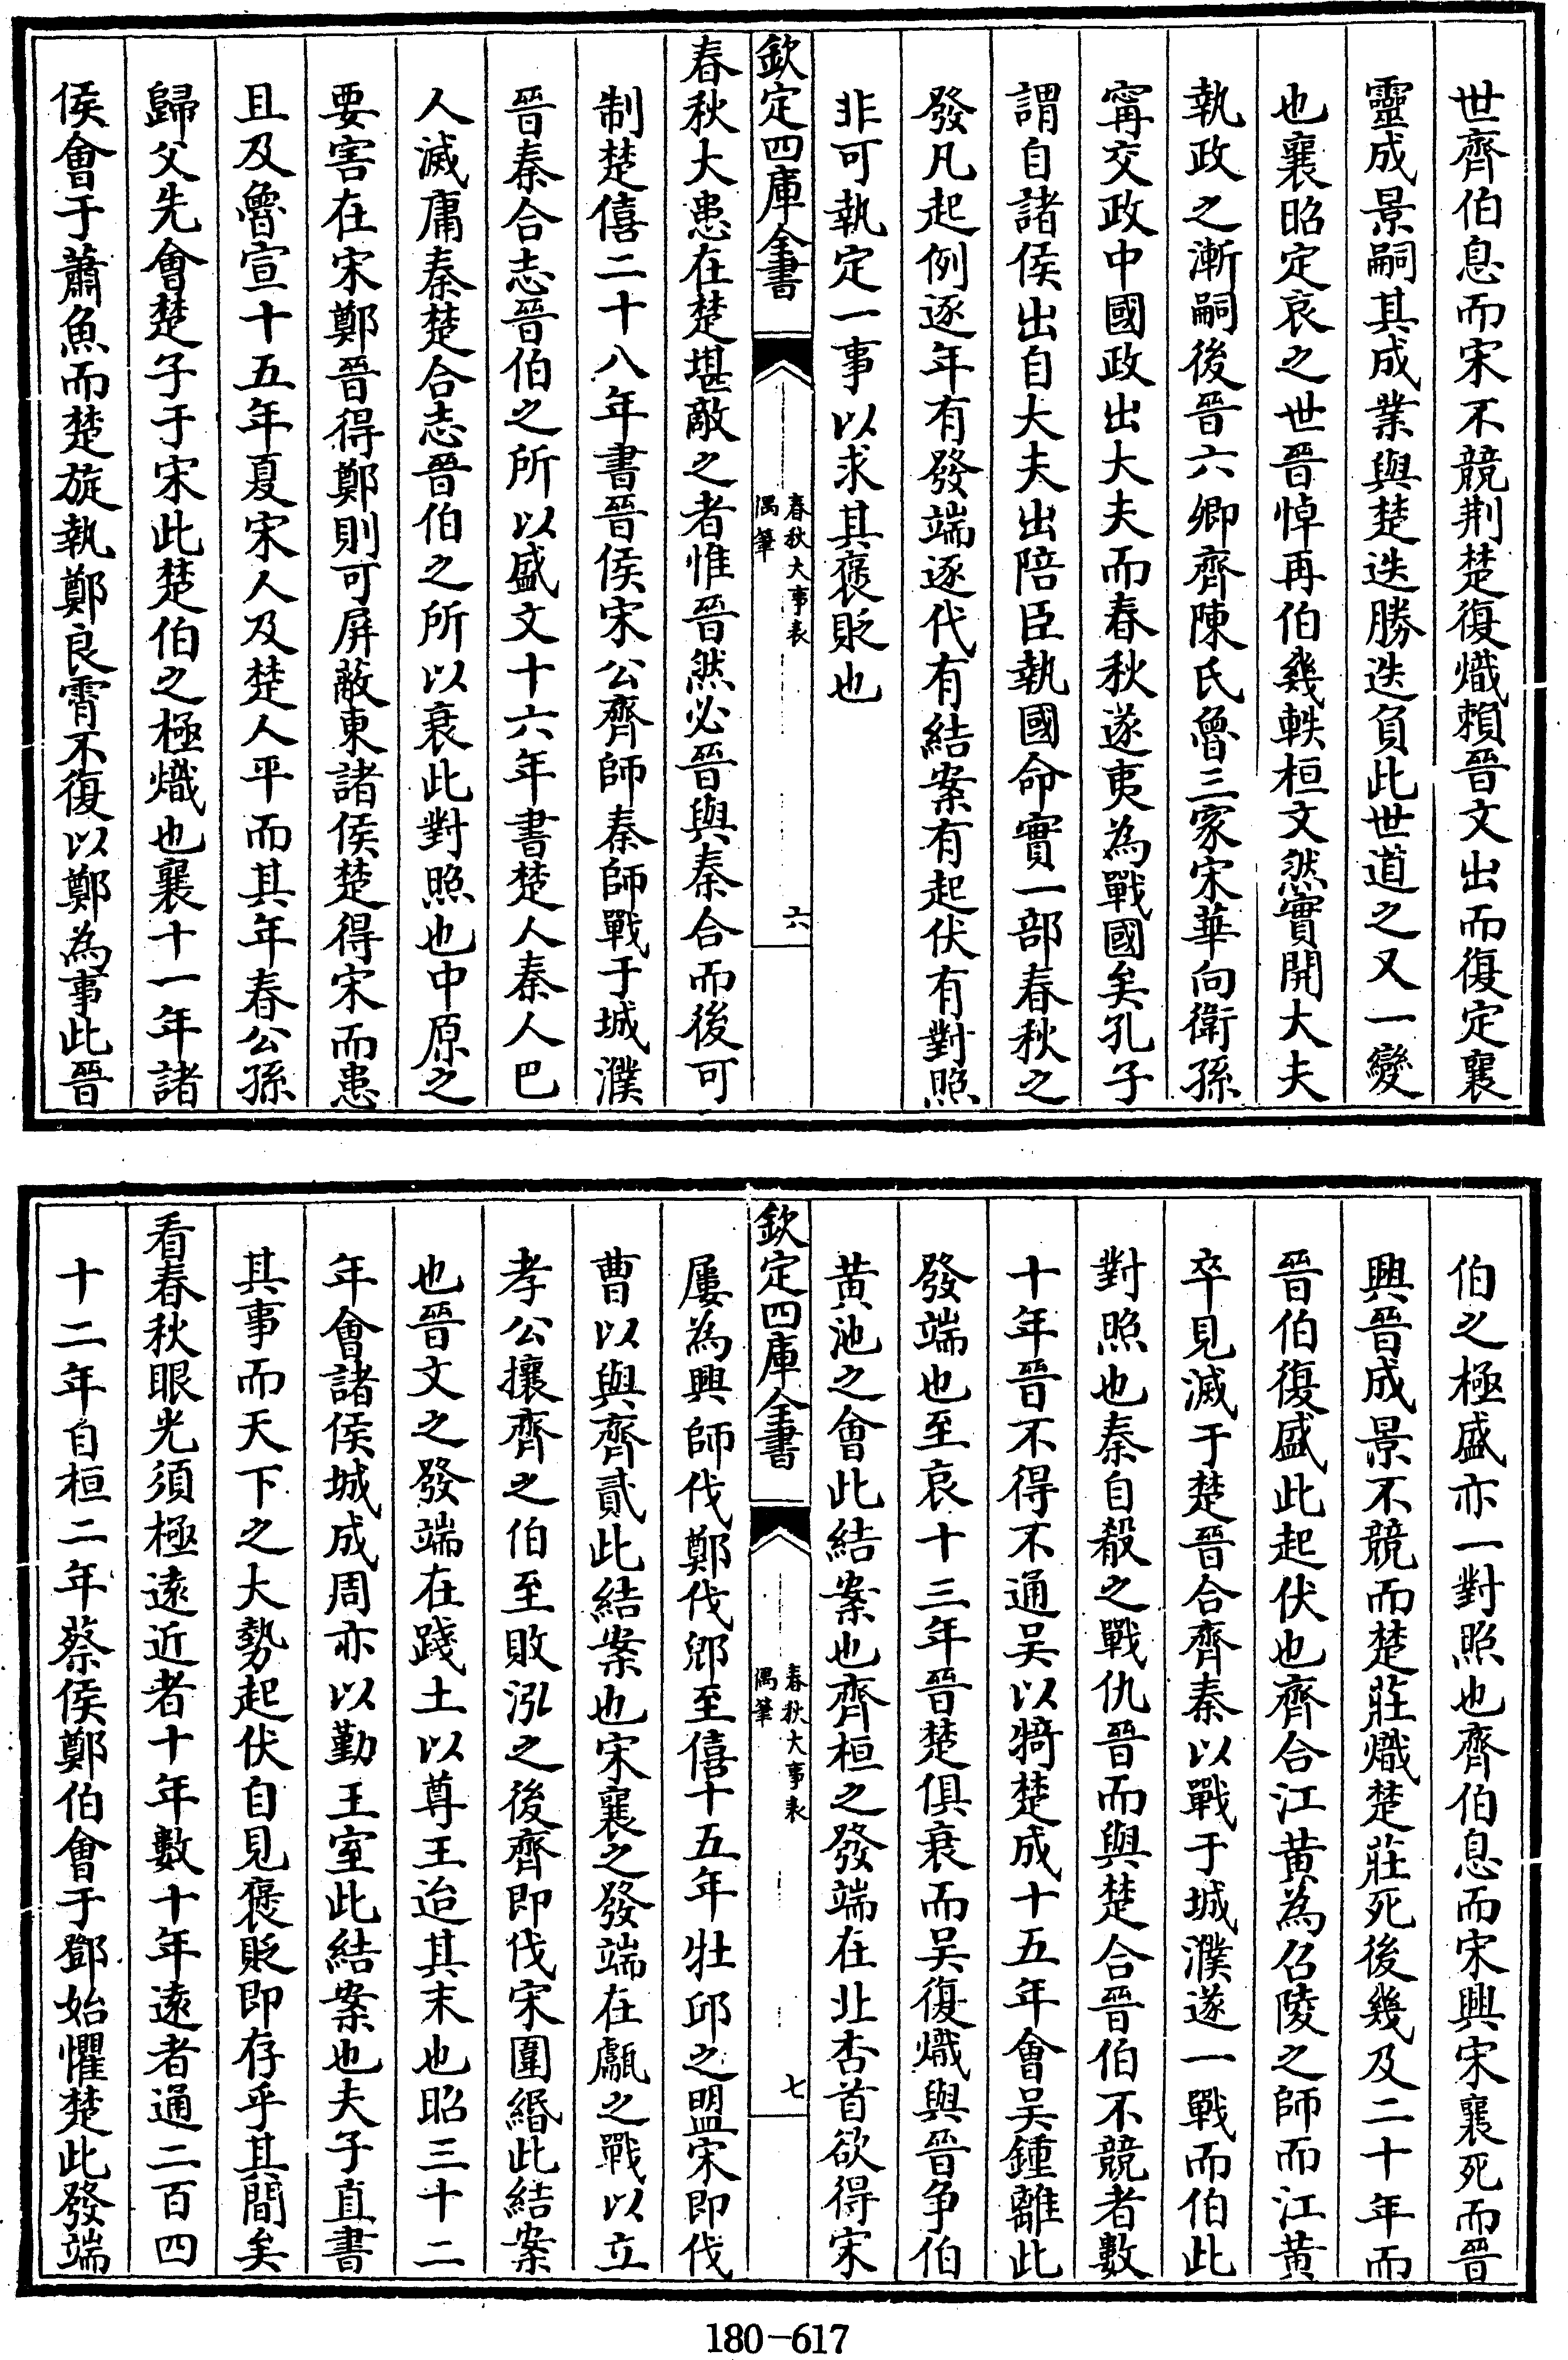 世齊伯息而宋不競荆楚復熾賴晉文出而復定襄
靈成景嗣其成業與楚迭勝迭負此世道之又一變
也襄昭定哀之世晉悼再伯幾軼桓文然實開大夫
執政之漸嗣後晉六卿齊陳氏魯三家宋華向衛孫
甯交政中國政出大夫而春秋遂夷為戰國矣孔子
謂自諸侯出自大夫出陪臣執國命實一部春秋之
發凡起例逐年有發端逐代有結案有起伏有對照
非可執定一事以求其褒貶也
欽定四庫全書
春秋大事表
偶筆
六
春秋大患在楚堪敵之者惟晉然必晉與秦合而後可
制楚僖二十八年書晉侯宋公齊師秦師戰于城濮
晉秦合志晉伯之所以盛文十六年書楚人秦人巴
人滅庸秦楚合志晉伯之所以衰此對照也中原之
要害在宋鄭晉得鄭則可屏蔽東諸侯楚得宋而患
且及魯宣十五年夏宋人及楚人平而其年春公孫
歸父先會楚子于宋此楚伯之極熾也襄十一年諸
侯會于蕭魚而楚旋執鄭良霄不復以鄭為事此晉
伯之極盛亦一對照也齊伯息而宋興宋襄死而晉
興晉成景不競而楚莊熾楚莊死後幾及二十年而
晉伯復盛此起伏也齊合江黃為召陵之師而江黃
卒見滅于楚晉合齊秦以戰于城濮遂一戰而伯此
對照也秦自殽之戰仇晉而與楚合晉伯不競者數
十年晉不得不通吳以犄楚成十五年會吳鍾離此
發端也至哀十三年晉楚俱衰而吳復熾與晉争伯
黃池之會此結案也齊桓之發端在北杏首欲得宋
欽定四庫全書
春秋大事表
偶筆
七
屢為興師伐鄭伐郳至僖十五年牡邱之盟宋即伐
曹以與齊貳此結案也宋襄之發端在甗之戰以立
孝公攘齊之伯至敗泓之後齊即伐宋圍緡此結案
也晉文之發端在踐土以尊王迨其末也昭三十二
年會諸侯城成周亦以勤王室此結案也夫子直書
其事而天下之大勢起伏自見褒貶即存乎其間矣
看春秋眼光須極遠近者十年數十年遠者通二百四
十二年自桓二年蔡侯鄭伯會于鄧始懼楚此發端
180-617